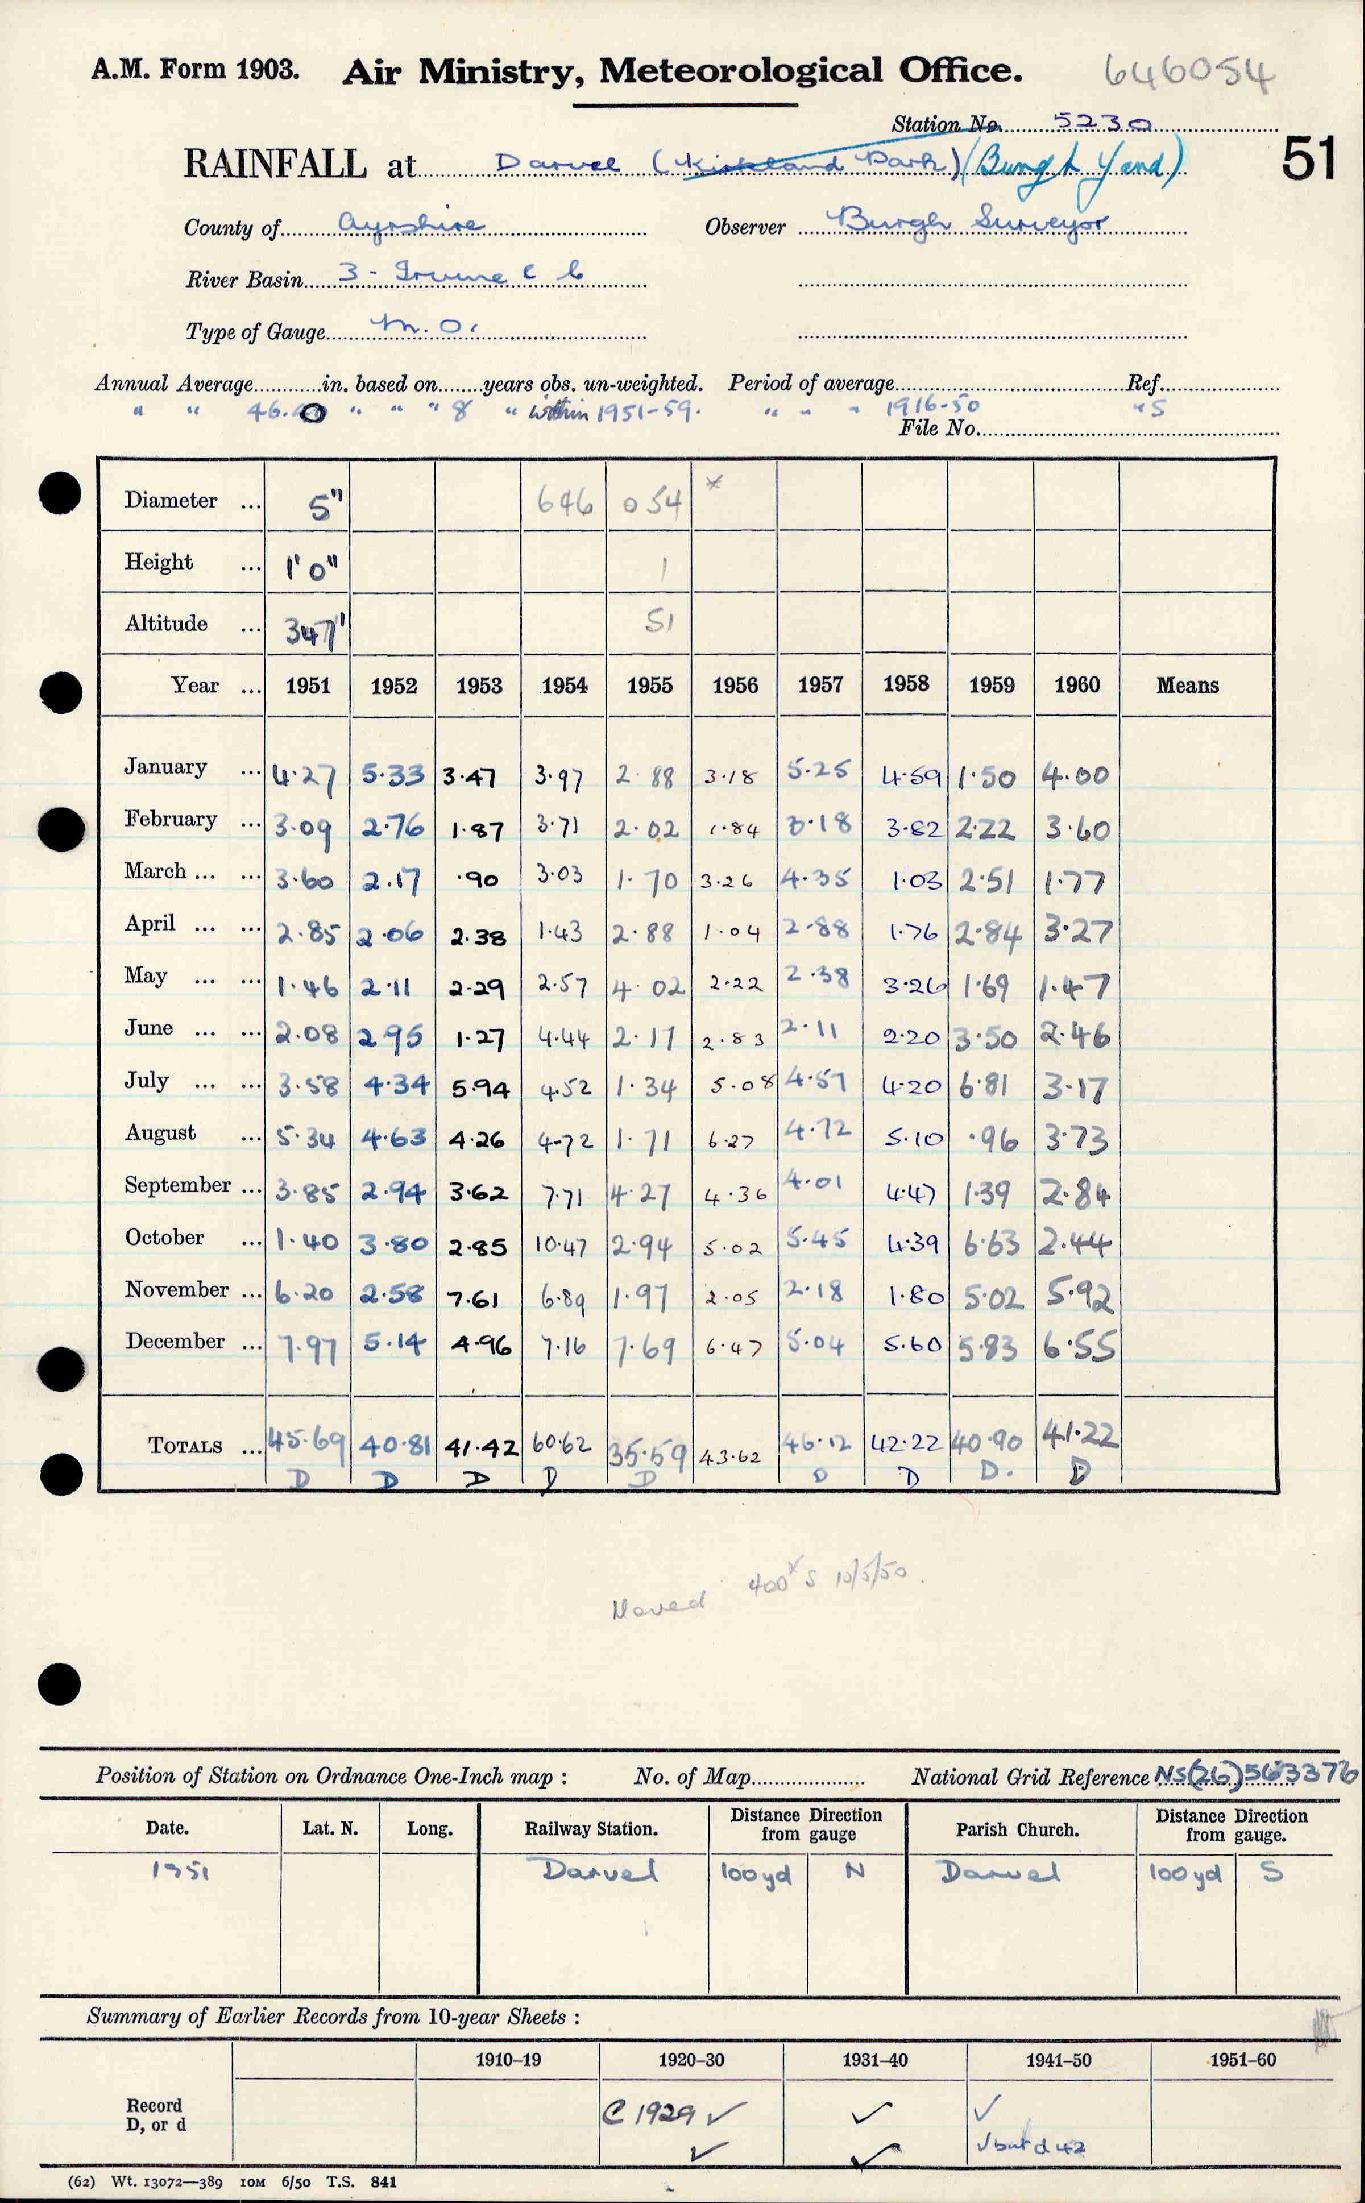 A.M. Form 1903. Air Ministry, Meteorological Office. 646054
Station No. 5230
RAINFALL at Darvel (Kirkland Park) (Burgh Yard) 51
County of Ayrshire Observer Burgh Surveyor
River Basin 3 - Irvine & C
Type of Gauge M.O.
Annual Average in. based on years obs. un-weighted. Period of average Ref.
" " 46. " " " 8 " within 1951-59. " " " 1916-50 "S
File No.
Diameter ... 5" 646 054 *
Height ... 1'0" 1
Altitude ... 347' 51
Year ... 1951 1952 1953 1954 1955 1956 1957 1958 1959 1960 Means
January ... 4.27 5.33 3.47 3.97 2.88 3.18 5.25 4.59 1.50 4.00
February ... 3.09 2.76 1.87 3.71 2.02 1.84 3.18 3.82 2.22 3.60
March ... ... 3.60 2.17 .90 3.03 1.70 3.26 4.35 1.03 2.51 1.77
April ... ... 2.85 2.06 2.38 1.43 2.88 1.04 2.88 1.76 2.84 3.27
May ... ... 1.46 2.11 2.29 2.57 4.02 2.22 2.38 3.26 1.69 1.47
June ... ... 2.08 2.95 1.27 4.44 2.17 2.83 2.11 2.20 3.50 2.46
July ... ... 3.58 4.34 5.94 4.52 1.34 5.08 4.57 4.20 6.81 3.17
August ... 5.34 4.63 4.26 4.72 1.71 6.27 4.72 5.10 .96 3.73
September ... 3.85 2.94 3.62 7.71 4.27 4.36 4.01 4.47 1.39 2.84
October ... 1.40 3.80 2.85 10.47 2.94 5.02 5.45 4.39 6.63 2.44
November ... 6.20 2.58 7.61 6.89 1.97 2.05 2.18 1.80 5.02 5.92
December ... 7.97 5.14 4.96 7.16 7.69 6.47 5.04 5.60 5.83 6.55
TOTALS ... 45.69 40.81 41.42 60.62 35.59 43.62 46.12 42.22 40.90 41.22
D D D D D D D D. D
Moved 400x S 10/5/50.
Position of Station on Ordnance One-Inch map : No. of Map National Grid Reference NS(26)563376
Date. Lat. N. Long. Railway Station. Distance Direction from gauge Parish Church. Distance Direction from gauge.
1951 Darvel 100yd N Darvel 100yd S
Summary of Earlier Records from 10-year Sheets :
1910–19 1920–30 1931–40 1941–50 1951–60
Record D, or d C 1929 ✓ ✓ ✓
✓ ✓ ✓ but d 42
(62) Wt. 13072—389 10M 6/50 T.S. 841